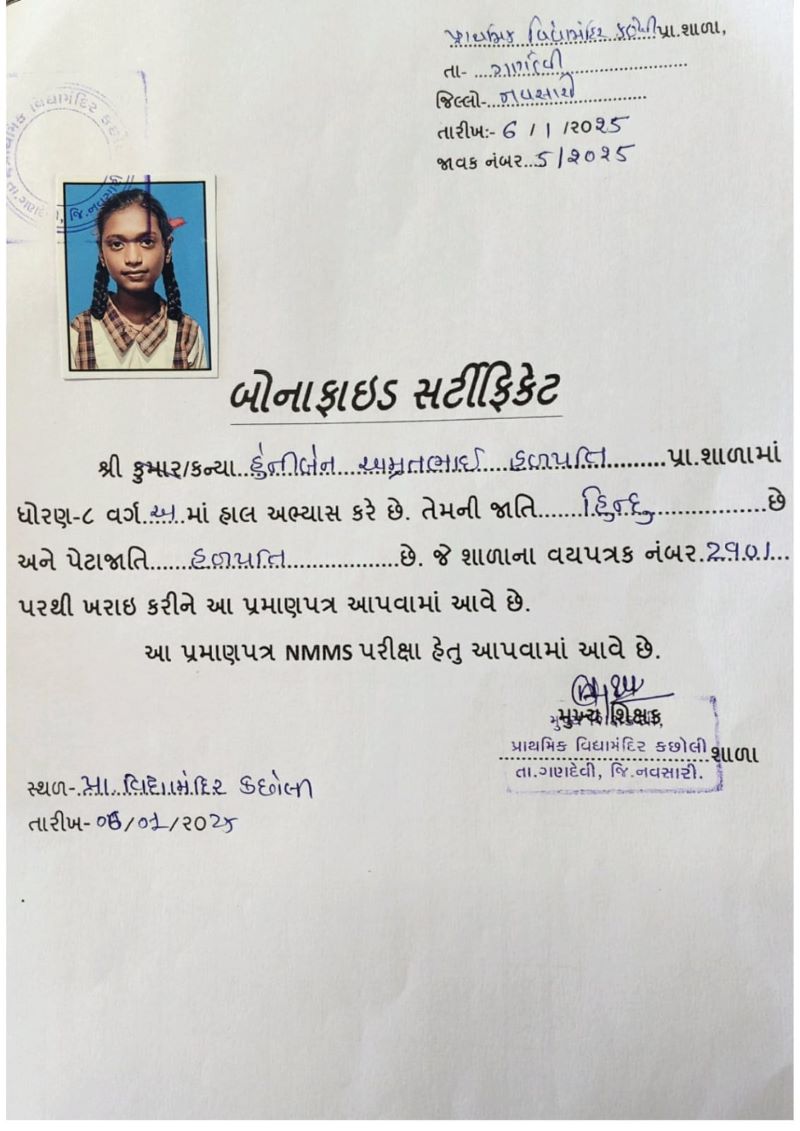 પ્રાથમિક વિદ્યામંદિર કછોલી પ્રા.શાળા,
તા- ...ગણદેવી...
જિલ્લો-..નવસારી...
તારીખ:- 6 / 1 /૨૦૨૫
જાવક નંબર...5/૨૦૨૫
પ્રાથમિક વિદ્યામંદિર કછોલી
જિ.નવસારી
બોનાફાઇડ સર્ટીફિકેટ
શ્રી કુમાર/કન્યા..હેનીબેન...અમૃતભાઈ....હળપતિ.........પ્રા.શાળામાં
ધોરણ-૮ વર્ગ.અ..માં હાલ અભ્યાસ કરે છે. તેમની જાતિ.......હિન્દુ..................છે
અને પેટાજાતિ......હળપતિ..................છે. જે શાળાના વયપત્રક નંબર.2901...
પરથી ખરાઇ કરીને આ પ્રમાણપત્ર આપવામાં આવે છે.
આ પ્રમાણપત્ર NMMS પરીક્ષા હેતુ આપવામાં આવે છે.
મુખ્ય શિક્ષક
પ્રાથમિક વિદ્યામંદિર કછોલી શાળા
તા.ગણદેવી, જિ.નવસારી.
સ્થળ-.પ્રા. વિદ્યામંદિર કછોલી
તારીખ- 06/01/૨૦૨૫